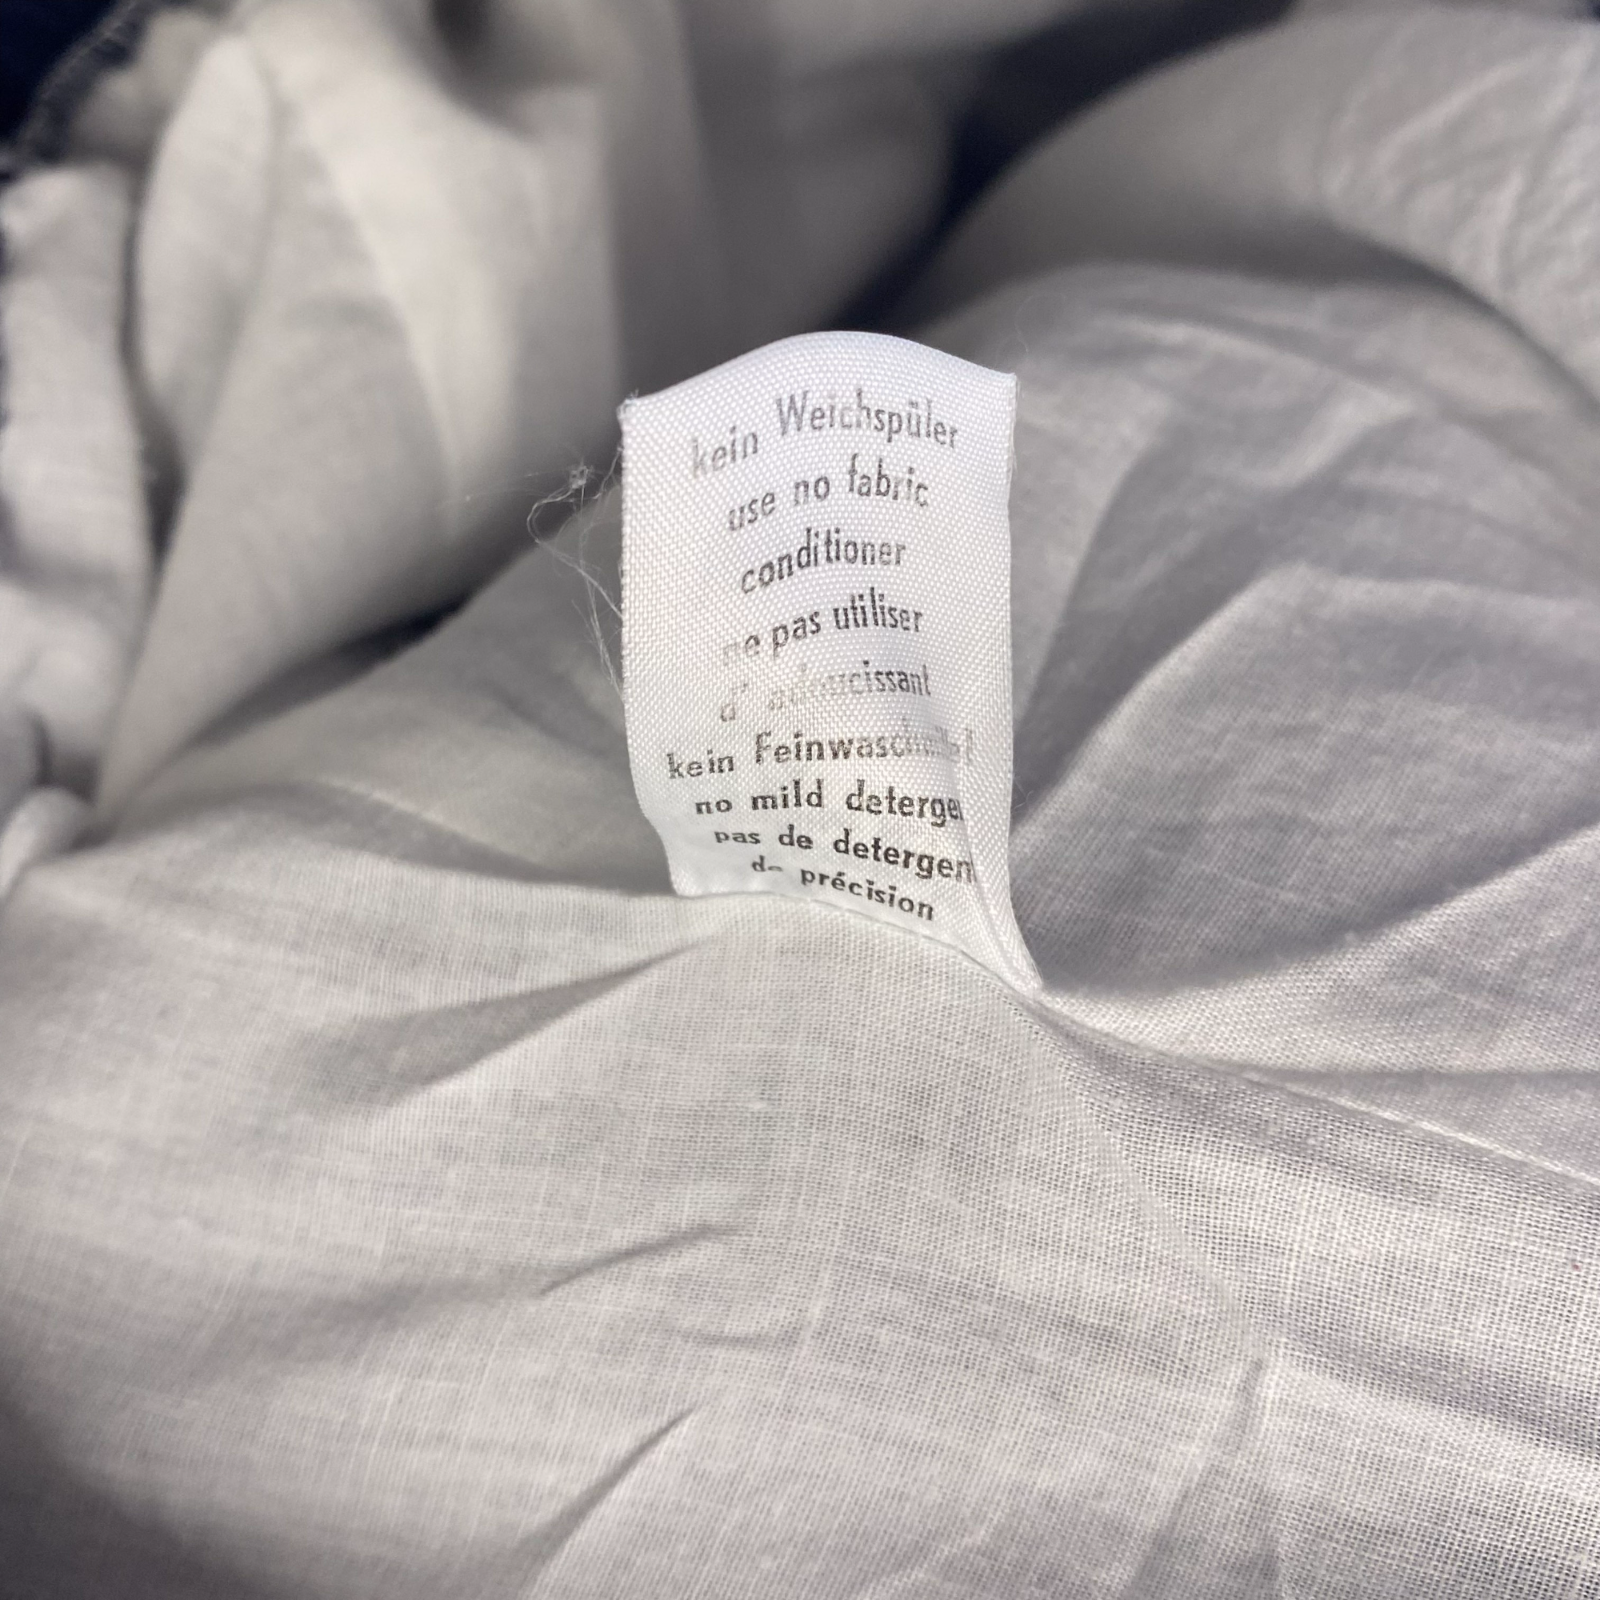 kein Weichspüler
use no fabric
conditioner
ne pas utiliser
d' adoucissant
kein Feinwaschmittel
no mild deterge
pas de detergen
de précision